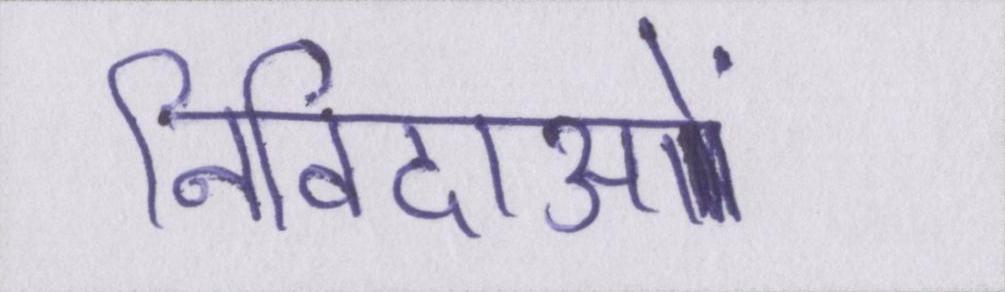 निविदाओं